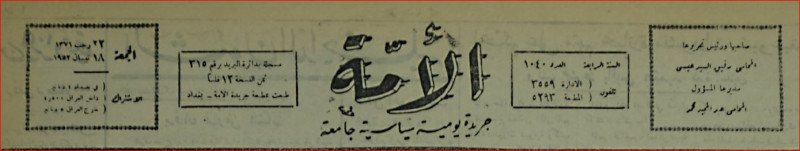 صاحبها ورئيس تحريرها
المحامي رفيق السيد عيسى
مديرها المسؤول
المحامي عبد المجيد محمد
السنة الرابعة العدد ١٠٤٠
تلفون
الادارة ٣٥٥٩
المطبعة ٥٢٩٣
الأمّة
جريدة يومية سياسية جامعة
مسجلة بدائرة البريد برقم ٣١٥
ثمن النسخة ١٢ فلسا
طبعت بمطبعة جريدة الأمة - بغداد
الجمعة
٢٢ رجب ١٣٧١
١٨ نيسان ١٩٥٢
الاشتراك
في بغداد
داخل العراق
خارج العراق